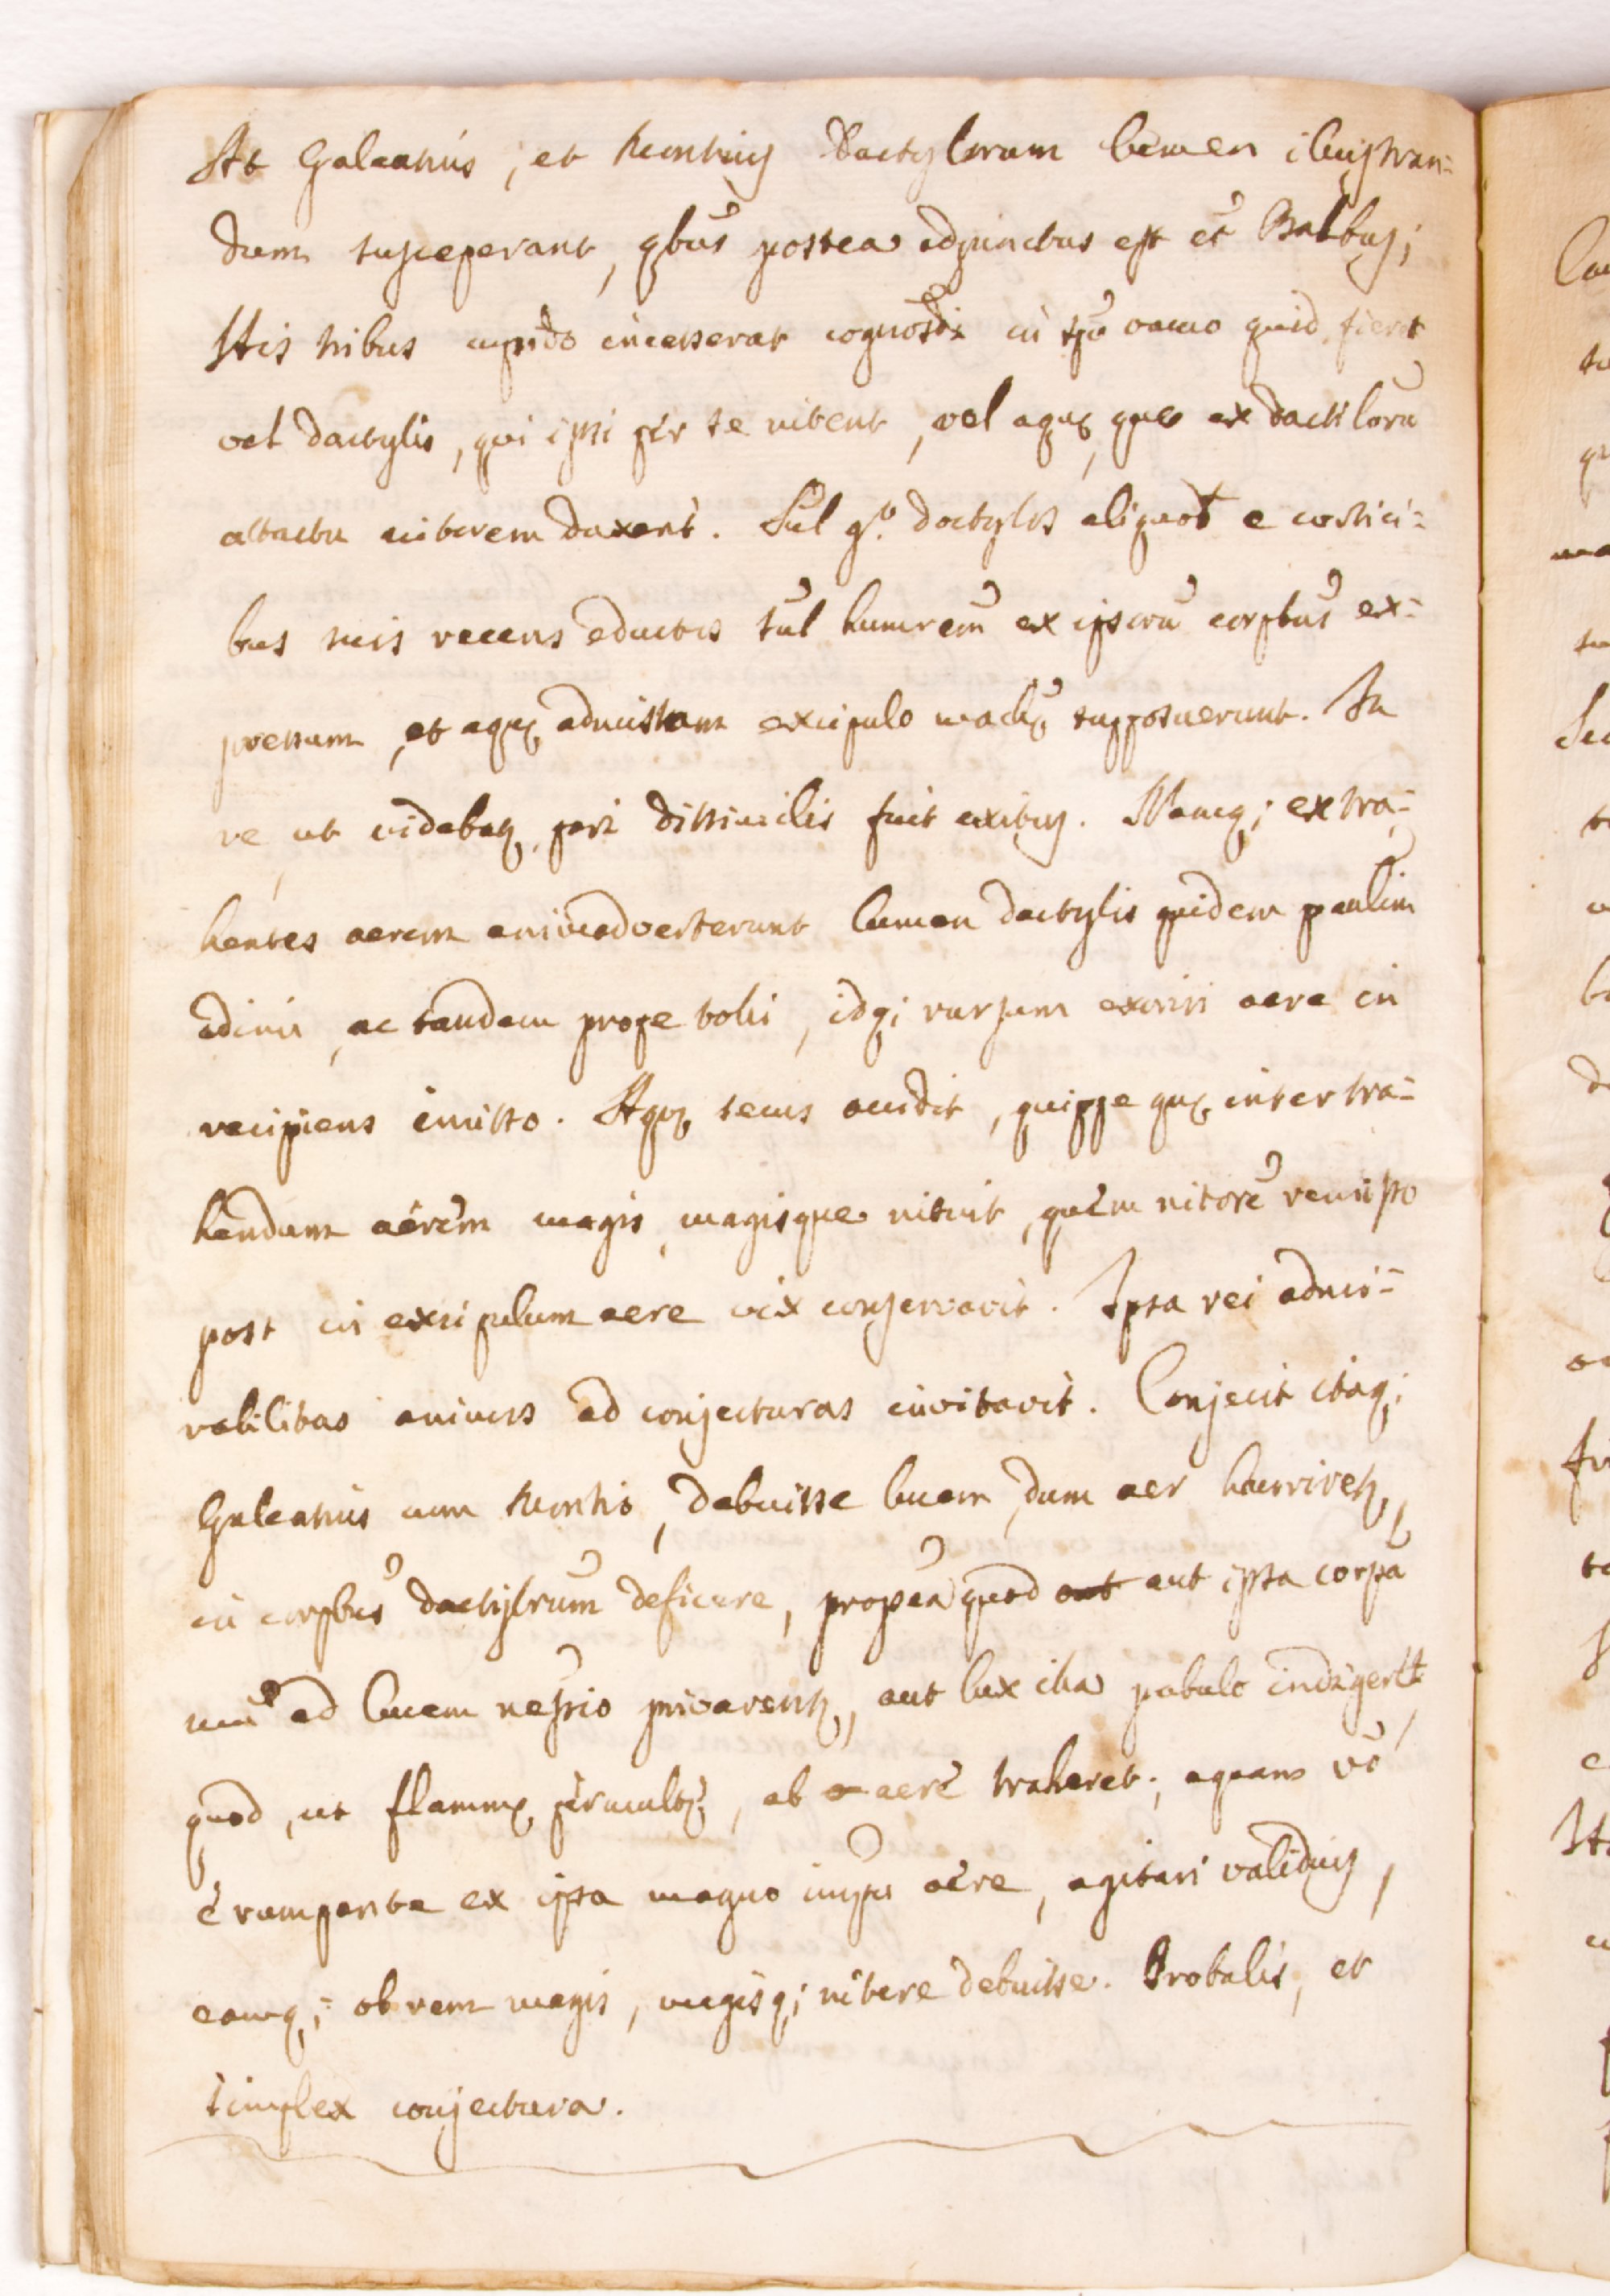 At Galeatius, et Montius Dactylorum lumen illustran=
dum susceperant, qbus postea adjunctus est et Balbus;
His tribus cupido incesserat cognoscdi in spõ vacuo quid fieret
vel dactylis, qui ipsi per se nitent, vel aquę, quę ex dactilorũ
attactu nitorem duxerit. Sul gº. dactylis aliquot e cortici=
bus suis recens eductis sul humorem ex ipsorũ corpbus ex=
pressum, et aquę admistam excipulo machę supposuerunt. In
re, ut videbatʳ, pari dissimilis fuit exitus. Namq; extra=
hentes aerem animadverterunt lumen dactylis quidem paulim
adimi, ac tandem prope tolli, idq; rursum exoriri aere in
recipiens immisso. Aquę secus accidit, quippe quę inter tra=
hendum aërem magis, magisque nituit, quem nitorẽ remisso
post in excipulum aere vix conservavit. Ipsa rei admi=
rabilitas animos ad conjecturas invitavit. Conjecit itaq;
Galeatius cum Montio, debuisse lucem, dum aer hauriretʳ,
in corpbus dactylorum deficere, propea quod aut aut ipsa corpa
mũ ad lucem nessrio privarentʳ, aut lux illa pabulo indigeret,
quod, ut flammę permultę, ab a aere traheret; aquam võ
erumpente ex ipsa magno impu aëre, agitari validius,
eamq; ob rem magis, magisq; nitere debuisse. Probalis, et
simplex conjectura.